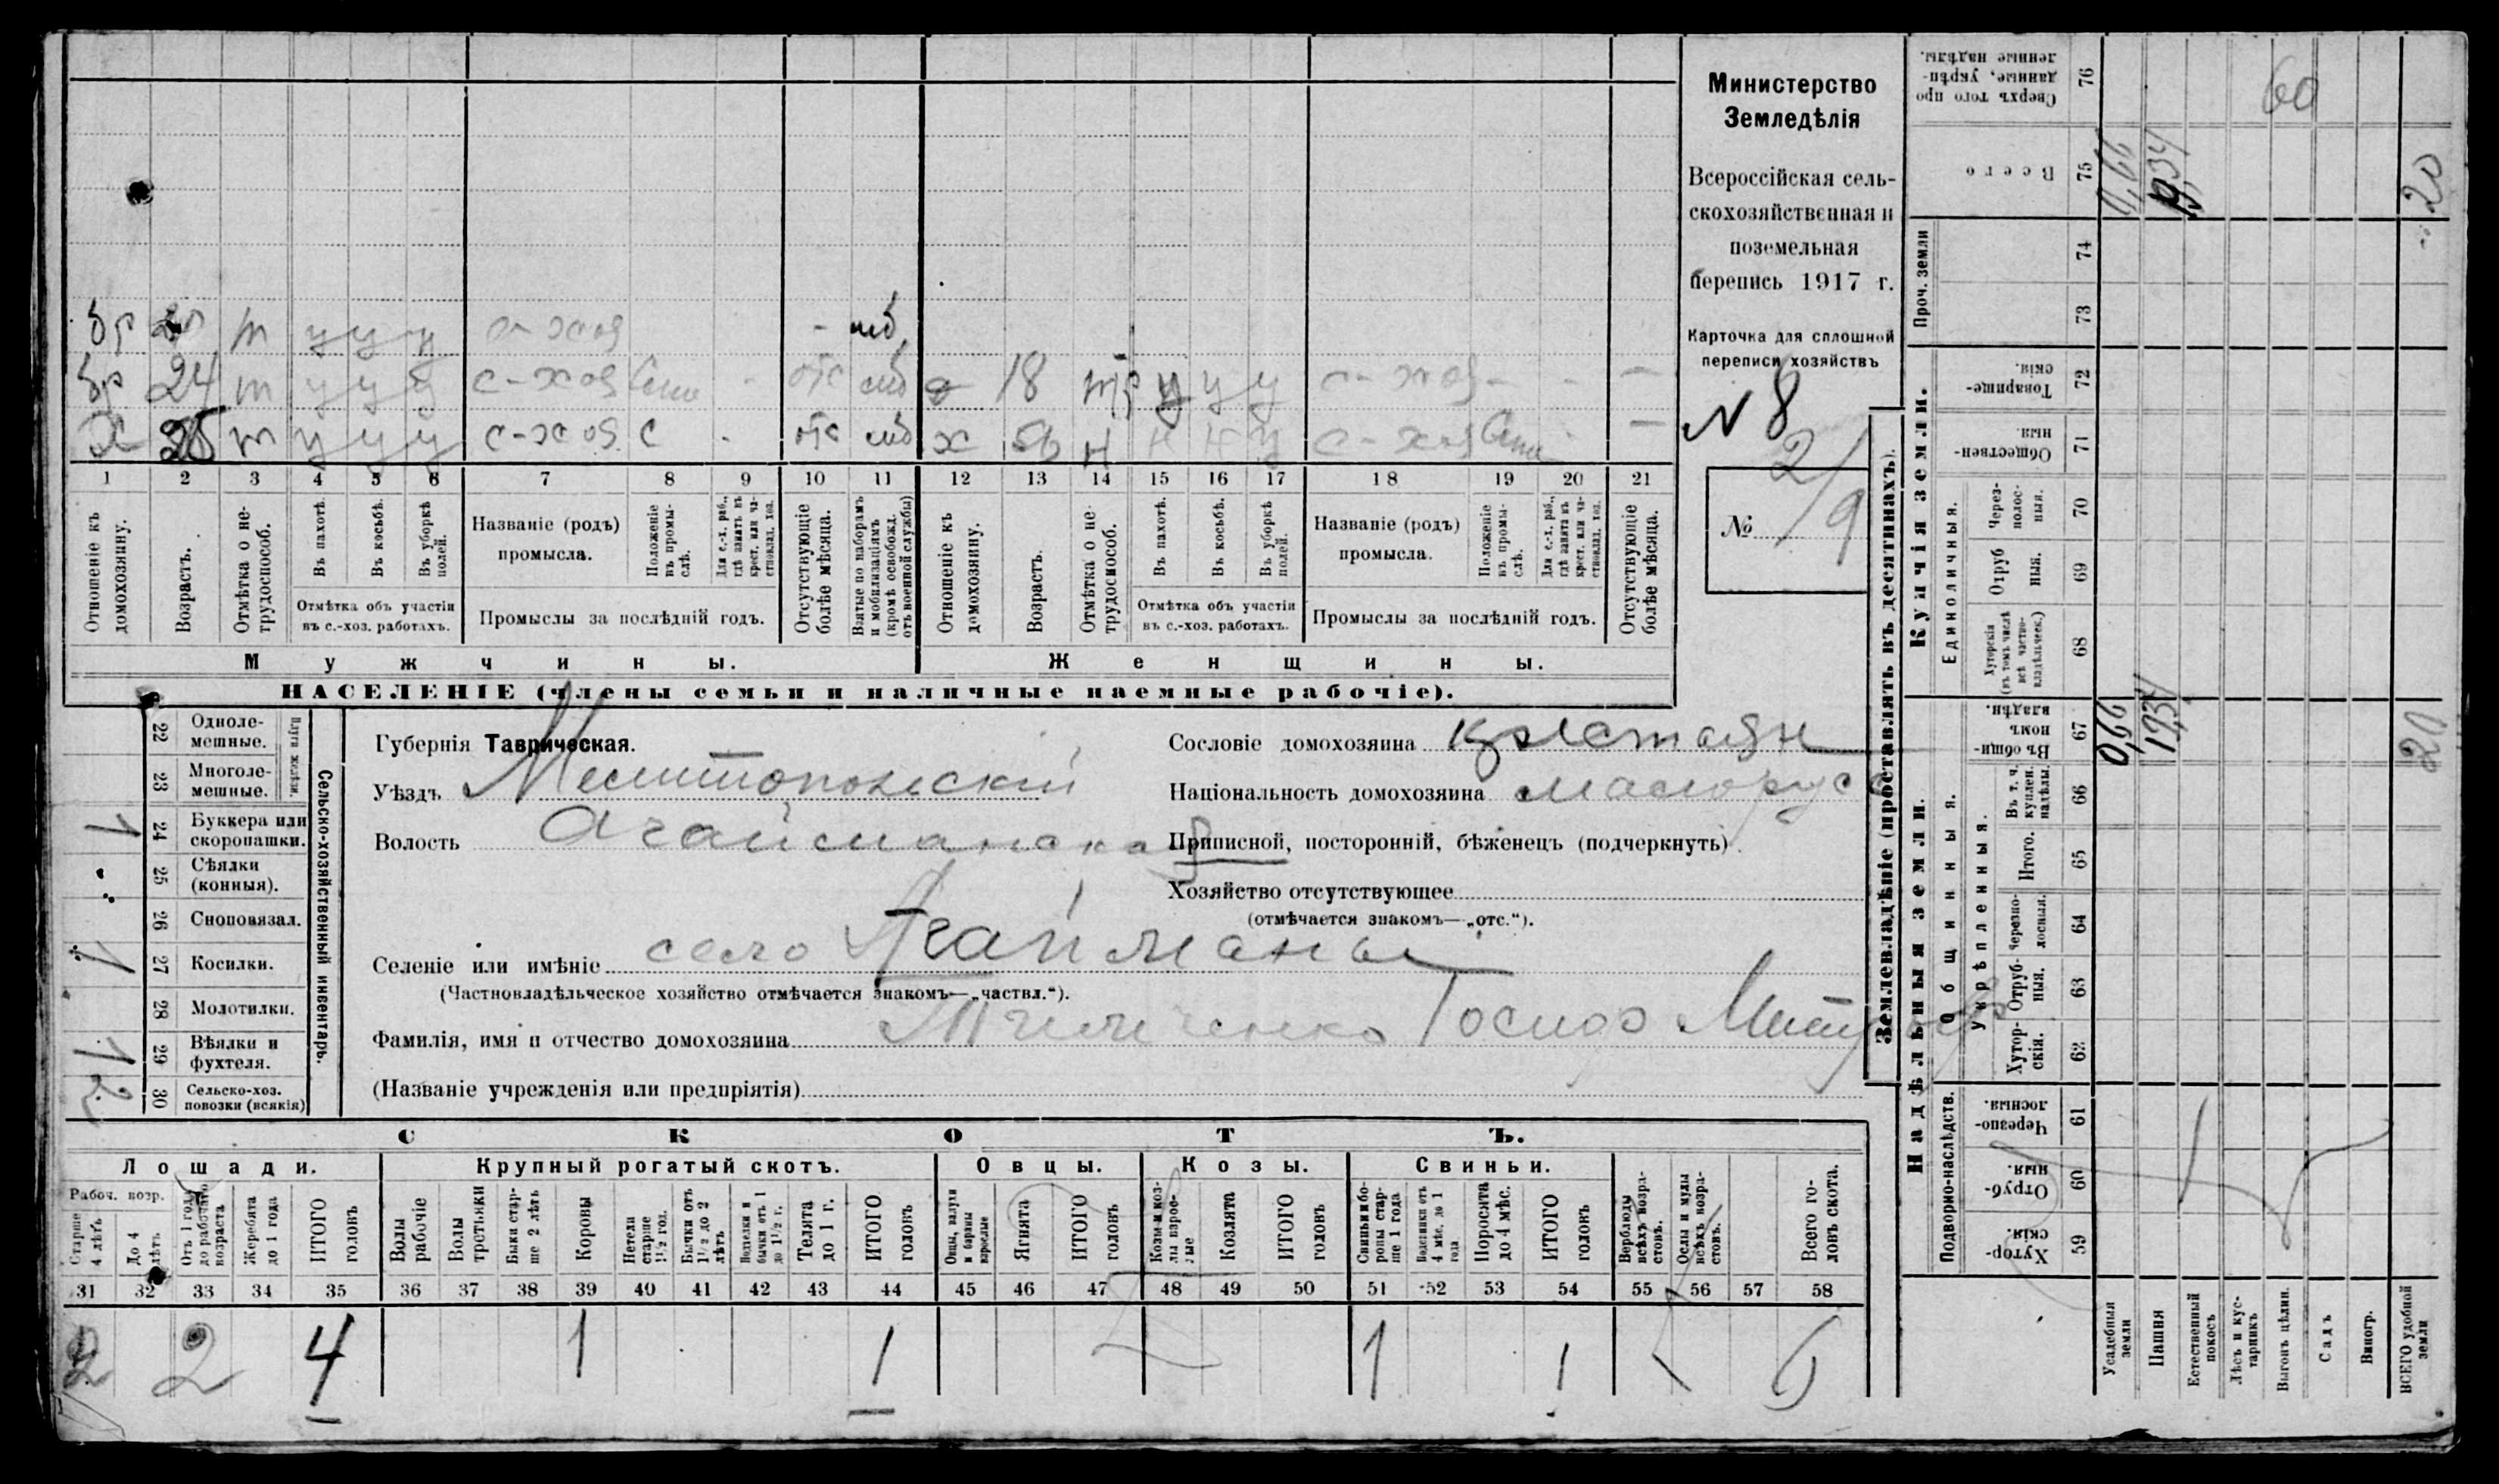 Министерство
Земледѣлія
Всероссійская сель-
скохозяйственная и
поземельная
перепись 1917 г.
Карточка для сплошной
переписи хозяйствъ
N 8
2/9
№
бр т у у у с-хоз - моб
бр 24 т у у у с-хоз отс моб 18 тр у у у с-хоз - - -
х т у у у с-хоз с отс моб х н н н у с-хоз -
1 2 3 4 5 6 7 8 9 10 11 12 13 14 15 16 17 18 19 20 21
Отношеніе къ домохозяину.
Возрастъ.
Отмѣтка о не-трудоспособ.
Въ пахотѣ.
Въ косьбѣ.
Въ уборкѣ полей.
Отмѣтка объ участіи въ с.-хоз. работахъ.
Названіе (родъ) промысла.
Положеніе въ промы-слѣ.
Для с.-х. раб., гдѣ занятъ въ крест. или ча-стновлад. хоз.
Промыслы за послѣдній годъ.
Отсутствующіе болѣе мѣсяца.
Взятые по наборамъ и мобилизаціямъ (кромѣ освобожд. отъ военной службы)
Отношеніе къ домохозяину.
Возрастъ.
Отмѣтка о не-трудоспособ.
Въ пахотѣ.
Въ косьбѣ.
Въ уборкѣ полей.
Отмѣтка объ участіи въ с.-хоз. работахъ.
Названіе (родъ) промысла.
Положеніе въ промы-слѣ.
Для с.-х. раб., гдѣ занята въ крест. или ча-стновлад. хоз.
Промыслы за послѣдній годъ.
Отсутствующіе болѣе мѣсяца.
Мужчины. Женщины.
НАСЕЛЕНІЕ (члены семьи и наличные наемные рабочіе).
Сельско-хозяйственный инвентарь.
Плуги желѣзн.
22 Одноле-мешные.
23 Многоле-мешные.
1 24 Буккера или скоропашки.
25 Сѣялки (конныя).
26 Сноповязал.
1 27 Косилки.
28 Молотилки.
1 29 Вѣялки и фухтеля.
2 30 Сельско-хоз. повозки (всякія)
Губернія Таврическая.
Уѣздъ Мелитопольскій
Волость Агайманская
Селеніе или имѣніе село Агайманы
(Частновладѣльческое хозяйство отмѣчается знакомъ—„частвл.“).
Фамилія, имя и отчество домохозяина
(Названіе учрежденія или предпріятія)
Сословіе домохозяина крестьян
Національность домохозяина малорус
Приписной, посторонній, бѣженецъ (подчеркнуть)
Хозяйство отсутствующее
(отмѣчается знакомъ—„отс.“).
СКОТЪ.
Лошади. Крупный рогатый скотъ. Овцы. Козы. Свиньи.
Рабоч. возр.
Старше 4 лѣтъ
До 4 лѣтъ
Отъ 1 года до рабочаго возраста
Жеребята до 1 года
ИТОГО головъ
Волы рабочіе
Волы третьяки
Быки стар-ше 2 лѣтъ
Коровы
Нетели старше 1½ год.
Бычки отъ 1½ до 2 лѣтъ
Телята до 1 г.
ИТОГО головъ
Овцы, валухи и бараны взрослые
Ягнята
ИТОГО головъ
Козы и коз-лы взрос-лые
Козлята
ИТОГО головъ
Свиньи и бо-ровы стар-ше 1 года
Подсвинки отъ 4 мѣс. до 1 года
Поросята до 4 мѣс.
ИТОГО головъ
Верблюды всѣхъ возра-стовъ.
Ослы и мулы всѣхъ возра-стовъ.
Всего го-ловъ скота.
31 32 33 34 35 36 37 38 39 40 41 42 43 44 45 46 47 48 49 50 51 52 53 54 55 56 57 58
2 2 4 1 1 1 1 6
Землевладѣніе (проставлять въ десятинахъ).
Купчія земли.
Надѣльныя земли.
Сверхъ того про-данные, укрѣп-ленные надѣлы. 76 60
Всего 75 0,66 19,34 20
Проч. земли
74
73
Товарище-скія. 72
Обществен-ныя. 71
Единоличныя.
Через-полос-ныя. 70
Отруб-ныя. 69
Хуторскія (въ томъ числѣ всѣ частно-владѣльческ.) 68
Общинныя.
Въ общин-номъ владѣн. 67 0,66 19,34 20
Укрѣпленныя.
Въ т. ч. куплен. надѣлы. 66
Итого. 65
Черезпо-лосныя. 64
Отруб-ныя. 63
Хутор-скія. 62
Подворно-наслѣдств.
Черезпо-лосныя. 61
Отруб-ныя. 60
Хутор-скія. 59
Усадебныя земли
Пашня
Естественный покосъ
Лѣсъ и кус-тарникъ
Выгонъ цѣлин.
Садъ
Виногр.
ВСЕГО удобной земли